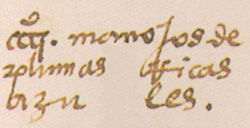 cccc. manojos de
plumas Ricas
azu les.